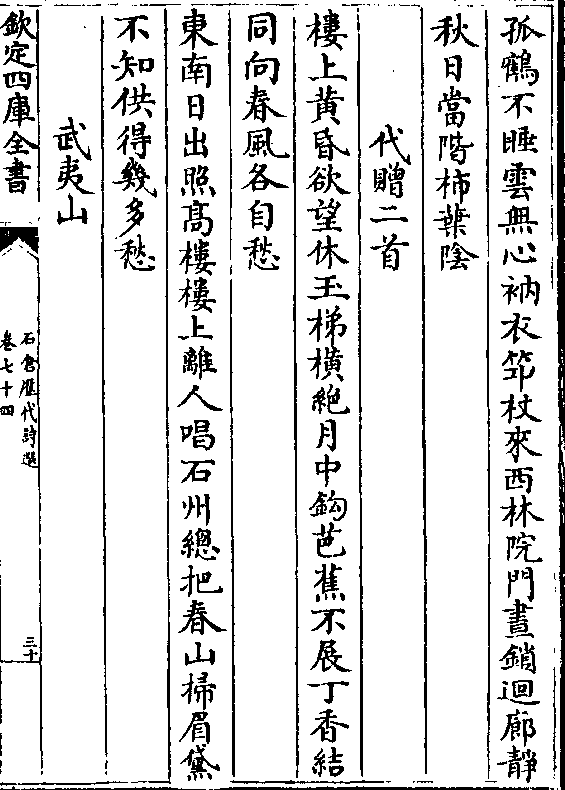 孤鶴不睡雲無心衲衣筇杖來西林院門晝鎖迴廊靜
秋日當階柿葉陰
代贈二首
樓上黃昏欲望休玉梯橫絶月中鈎芭蕉不展丁香結
同向春風各自愁
東南日出照髙樓樓上離人唱石州總把春山掃眉黛
不知供得幾多愁
武夷山
欽定四庫全書
石倉歷代詩選
卷七十四
三十